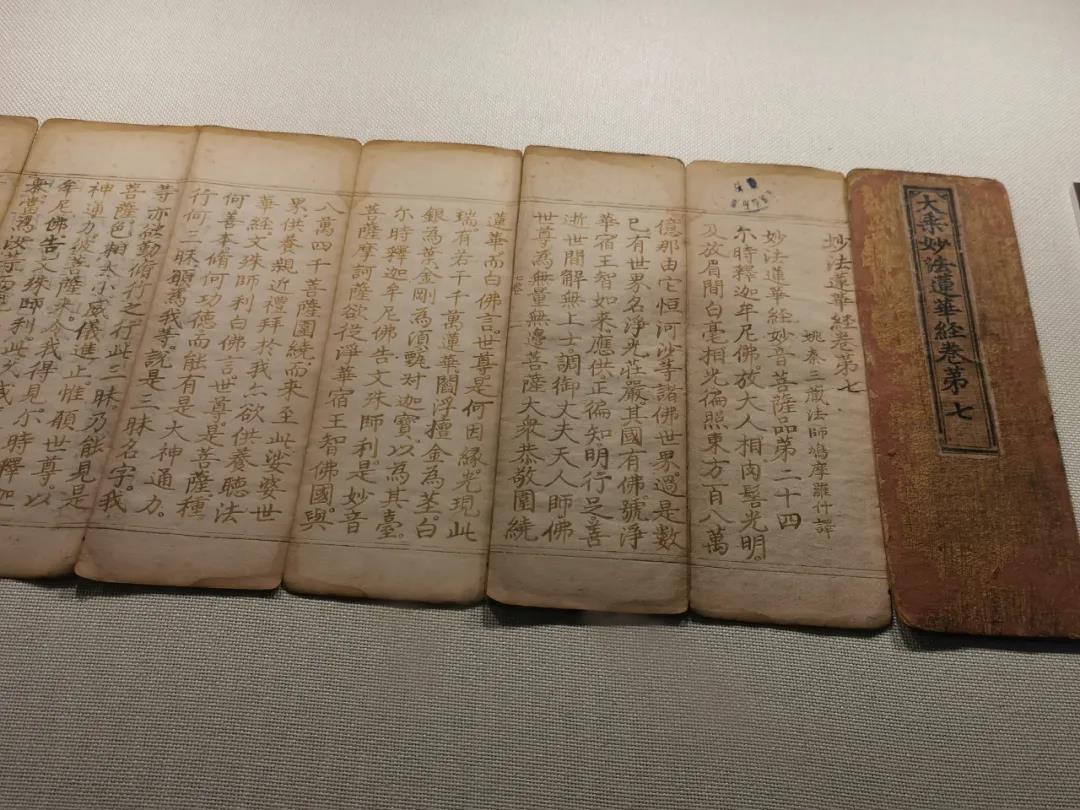 大乘妙法蓮華经卷苐七
妙法蓮華经卷苐七
姚秦三藏法師鳩摩羅什譯
妙法蓮華经妙音菩薩品苐二十四
尓時釋迦牟尼佛。放大人相肉髻光明。
及放眉間白毫相光徧照東方百八萬
億那由它恒河沙等諸佛世界。過是數
已有世界名淨光莊嚴其國有佛。號淨
華宿王智如来。應供。正徧知。明行足。善
逝。世間解。無上士。調御丈夫。天人師。佛。
世尊為無量無邊菩薩大衆恭敬圍繞
蓮華而白佛言。世尊。是何因緣。先現此
瑞。有若干千萬蓮華閻浮檀金為莖。白
銀為葉。金剛為湏甄叔迦寶。以為其臺。
尓時釋迦牟尼佛告文殊師利是妙音
菩薩摩訶薩欲從淨華宿王智佛國。與
八萬四千菩薩圍繞。而来至此娑婆世
界。供養親近禮拜於我亦欲供養聽法
華经。文殊師利白佛言。世尊。是菩薩種
何善本。脩何功徳而能有是大神通力。
行何三昧。願為我等。說是三昧名字。我
等亦欲勤脩行之行此三昧。乃能見是
菩薩色相大小威儀進止。惟願世尊。以
神通力。彼菩薩来。令我得見。尓時釋迦
牟尼佛告文殊師利。此